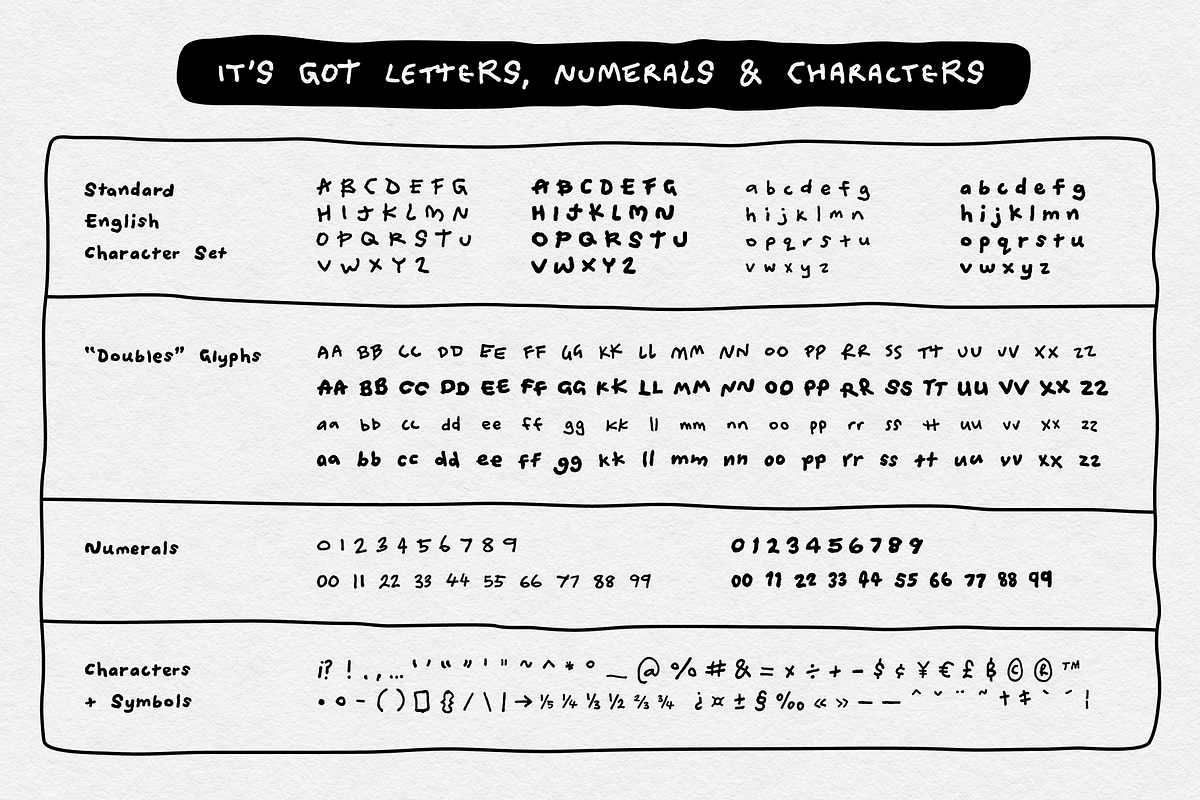 IT'S GOT LETTERS, NUMERALS & CHARACTERS
Standard
English
Character Set
A B C D E F G
H I J K L M N
O P Q R S T U
V W X Y Z
A B C D E F G
H I J K L M N
O P Q R S T U
V W X Y Z
a b c d e f g
h i j k l m n
o p q r s t u
v w x y z
a b c d e f g
h i j k l m n
o p q r s t u
v w x y z
“Doubles” Glyphs
AA BB CC DD EE FF GG KK LL MM NN OO PP RR SS TT UU VV XX ZZ
AA BB CC DD EE FF GG KK LL MM NN OO PP RR SS TT UU VV XX ZZ
aa bb cc dd ee ff gg kk ll mm nn oo pp rr ss tt uu vv xx zz
aa bb cc dd ee ff gg kk ll mm nn oo pp rr ss tt uu vv xx zz
Numerals
0 1 2 3 4 5 6 7 8 9
00 11 22 33 44 55 66 77 88 99
0 1 2 3 4 5 6 7 8 9
00 11 22 33 44 55 66 77 88 99
Characters
+ Symbols
i? ! . , … ‘ ’ “ ” ' " ~ ^ * ° _ @ % # & = × ÷ + - $ ¢ ¥ € £ ₿ © ® ™
• ∘ - ( ) [] {} / \ | → ⅕ ¼ ⅓ ½ ⅔ ¾ ¿ ¤ ± § ‰ « » – — ˆ ˇ ¨ ˜ † ‡ ` ´ ¦